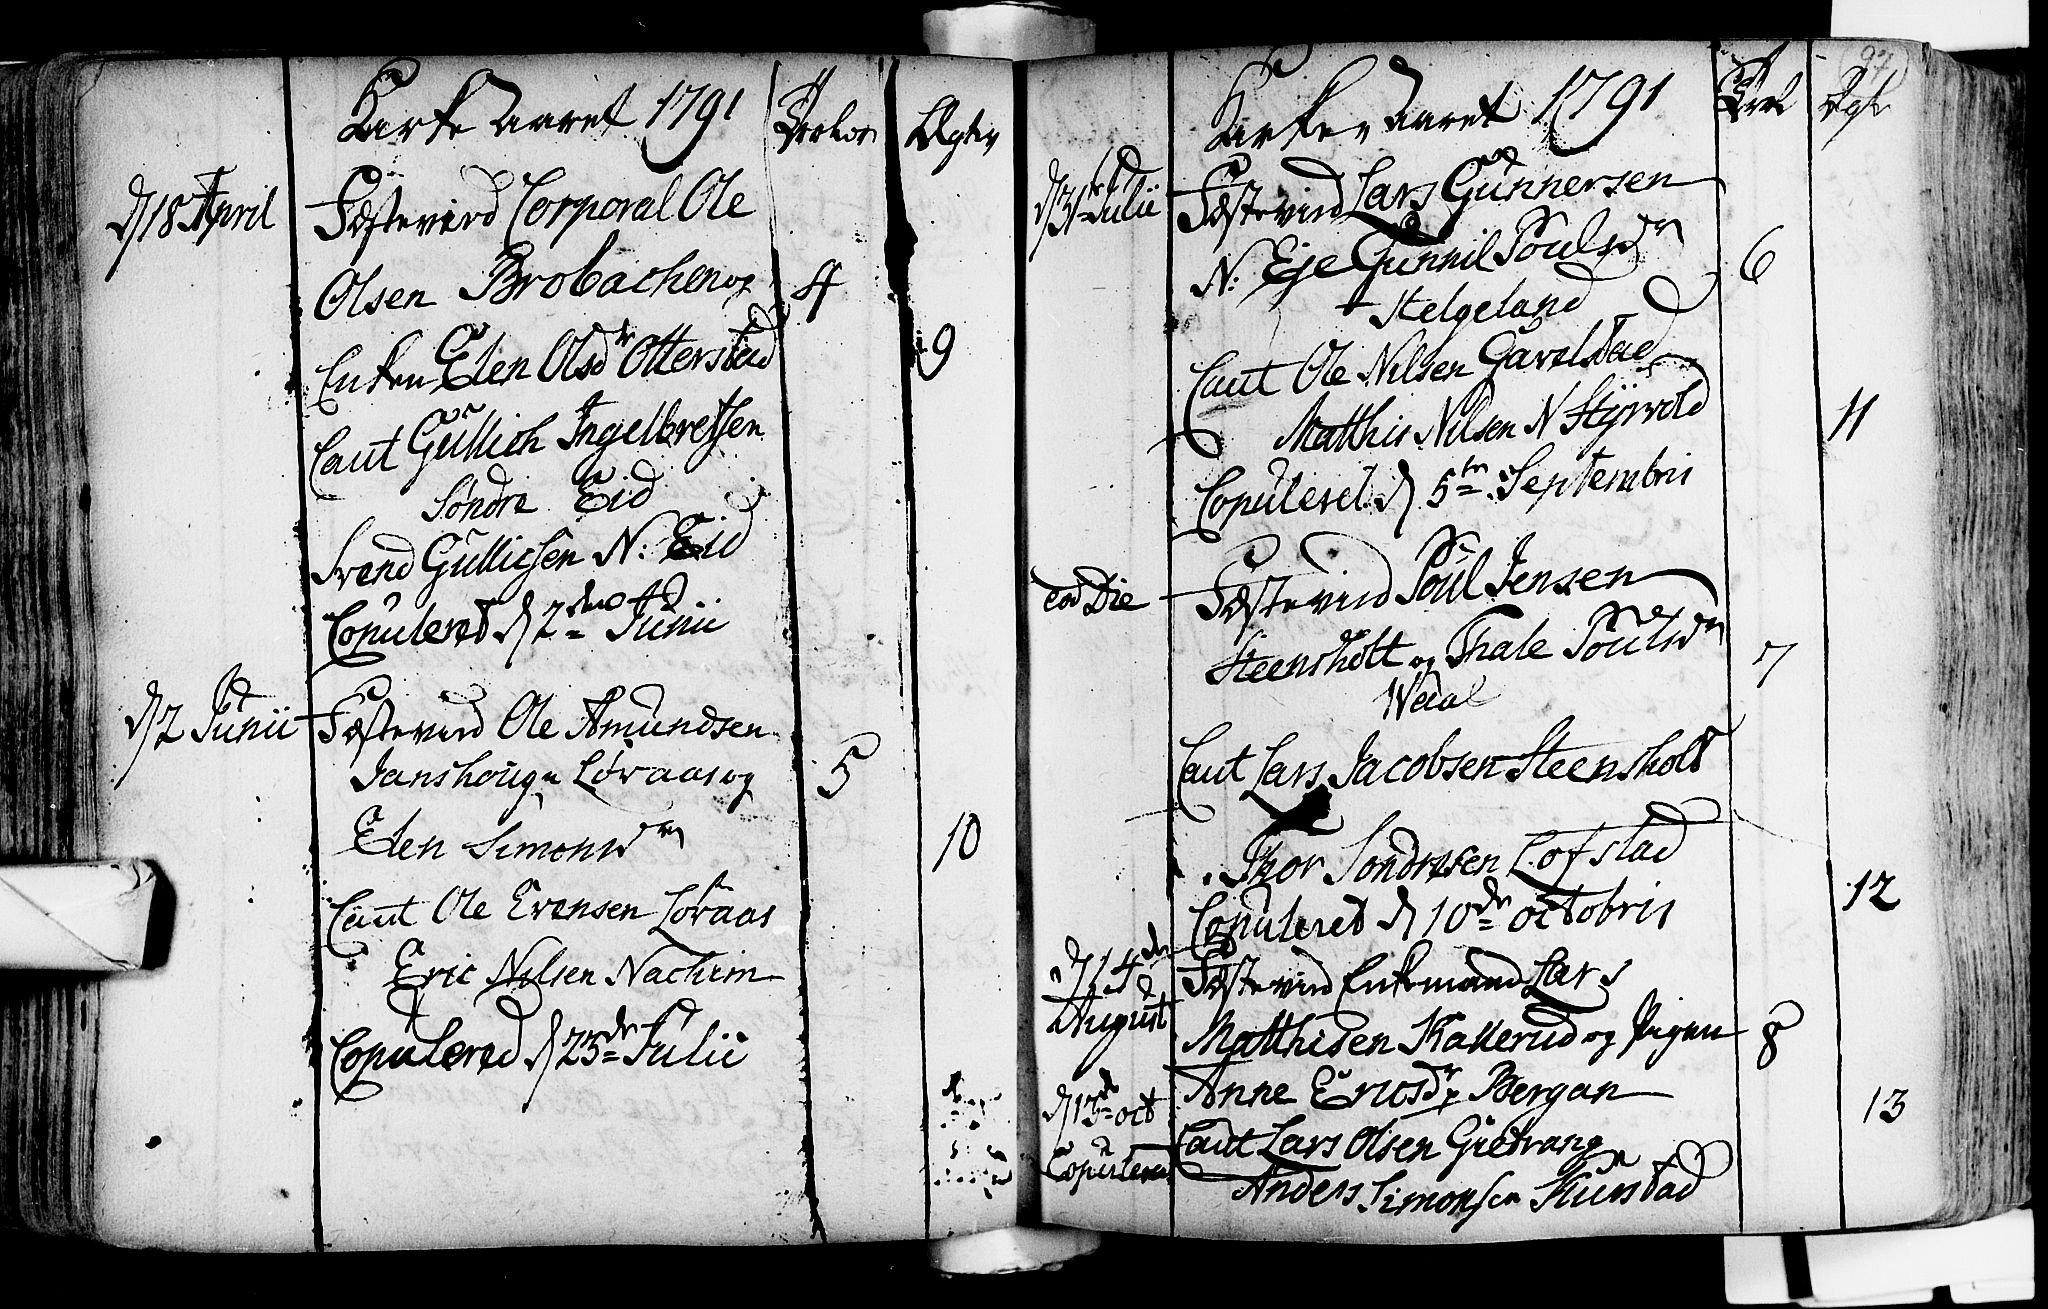 Kirke Aaret 1791
Trolov
Ægtev
d 18 April
Fæstevird Corporal Ole
Olsen Brobachen og
4
Enken Eden Olsdr Otterstad
9
Caut Gullich Ingelbretsen
Søndre Eid
Svend Gullicsen N: Eid
Copuleret d 2den Junii
d 2 Junii
Fæstevird Ole Amundsen
Janshougn Løraas og
5
Eden Simonsdr
10
Caut Ole Evensen Løraas
Eric Nilsen Nachim
Copulered d 23de Julii
97
Kirke Aaret 1791
Trol
Ægt
d 31 Julii
Fæstevird Lars Gunnersen
N: Eje Gunnil Poulsdr
6
Helgeland
Caut Ole Nilsen Gavelstad
Matthis Nilsen N Styrvold
11
Copuleret d 5te Septembris
eod Die
Fæstevird Poul Jensen
Steensholt og Thale Poulsdr
7
Wedal
Caut Lars Jacobsen Steensholt
Thor Sondresen Lofstad
12
Copuleret d 10de octobris
d 14de
August
Fæstevird Enkemand Lars
Matthisen Kallerud og Pigen
8
Anne Ericsdr Bergan
13
d 13de oct
Copuleret
Caut Lars Olsen Gietrang
Anders Simonsen Skurstad